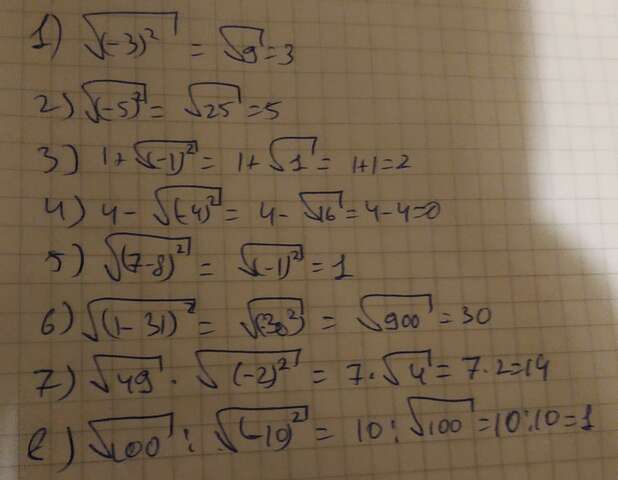 1) √(-3)² = √9 = 3
2) √(-5)² = √25 = 5
3) 1+√(-1)² = 1+√1 = 1+1=2
4) 4-√(-4)² = 4-√16 = 4-4=0
5) √(7-8)² = √(-1)² = 1
6) √(1-31)² = √(-30²) = √900 = 30
7) √49 · √(-2)² = 7·√4 = 7·2=14
8) √100 : √(-10)² = 10:√100 = 10:10=1